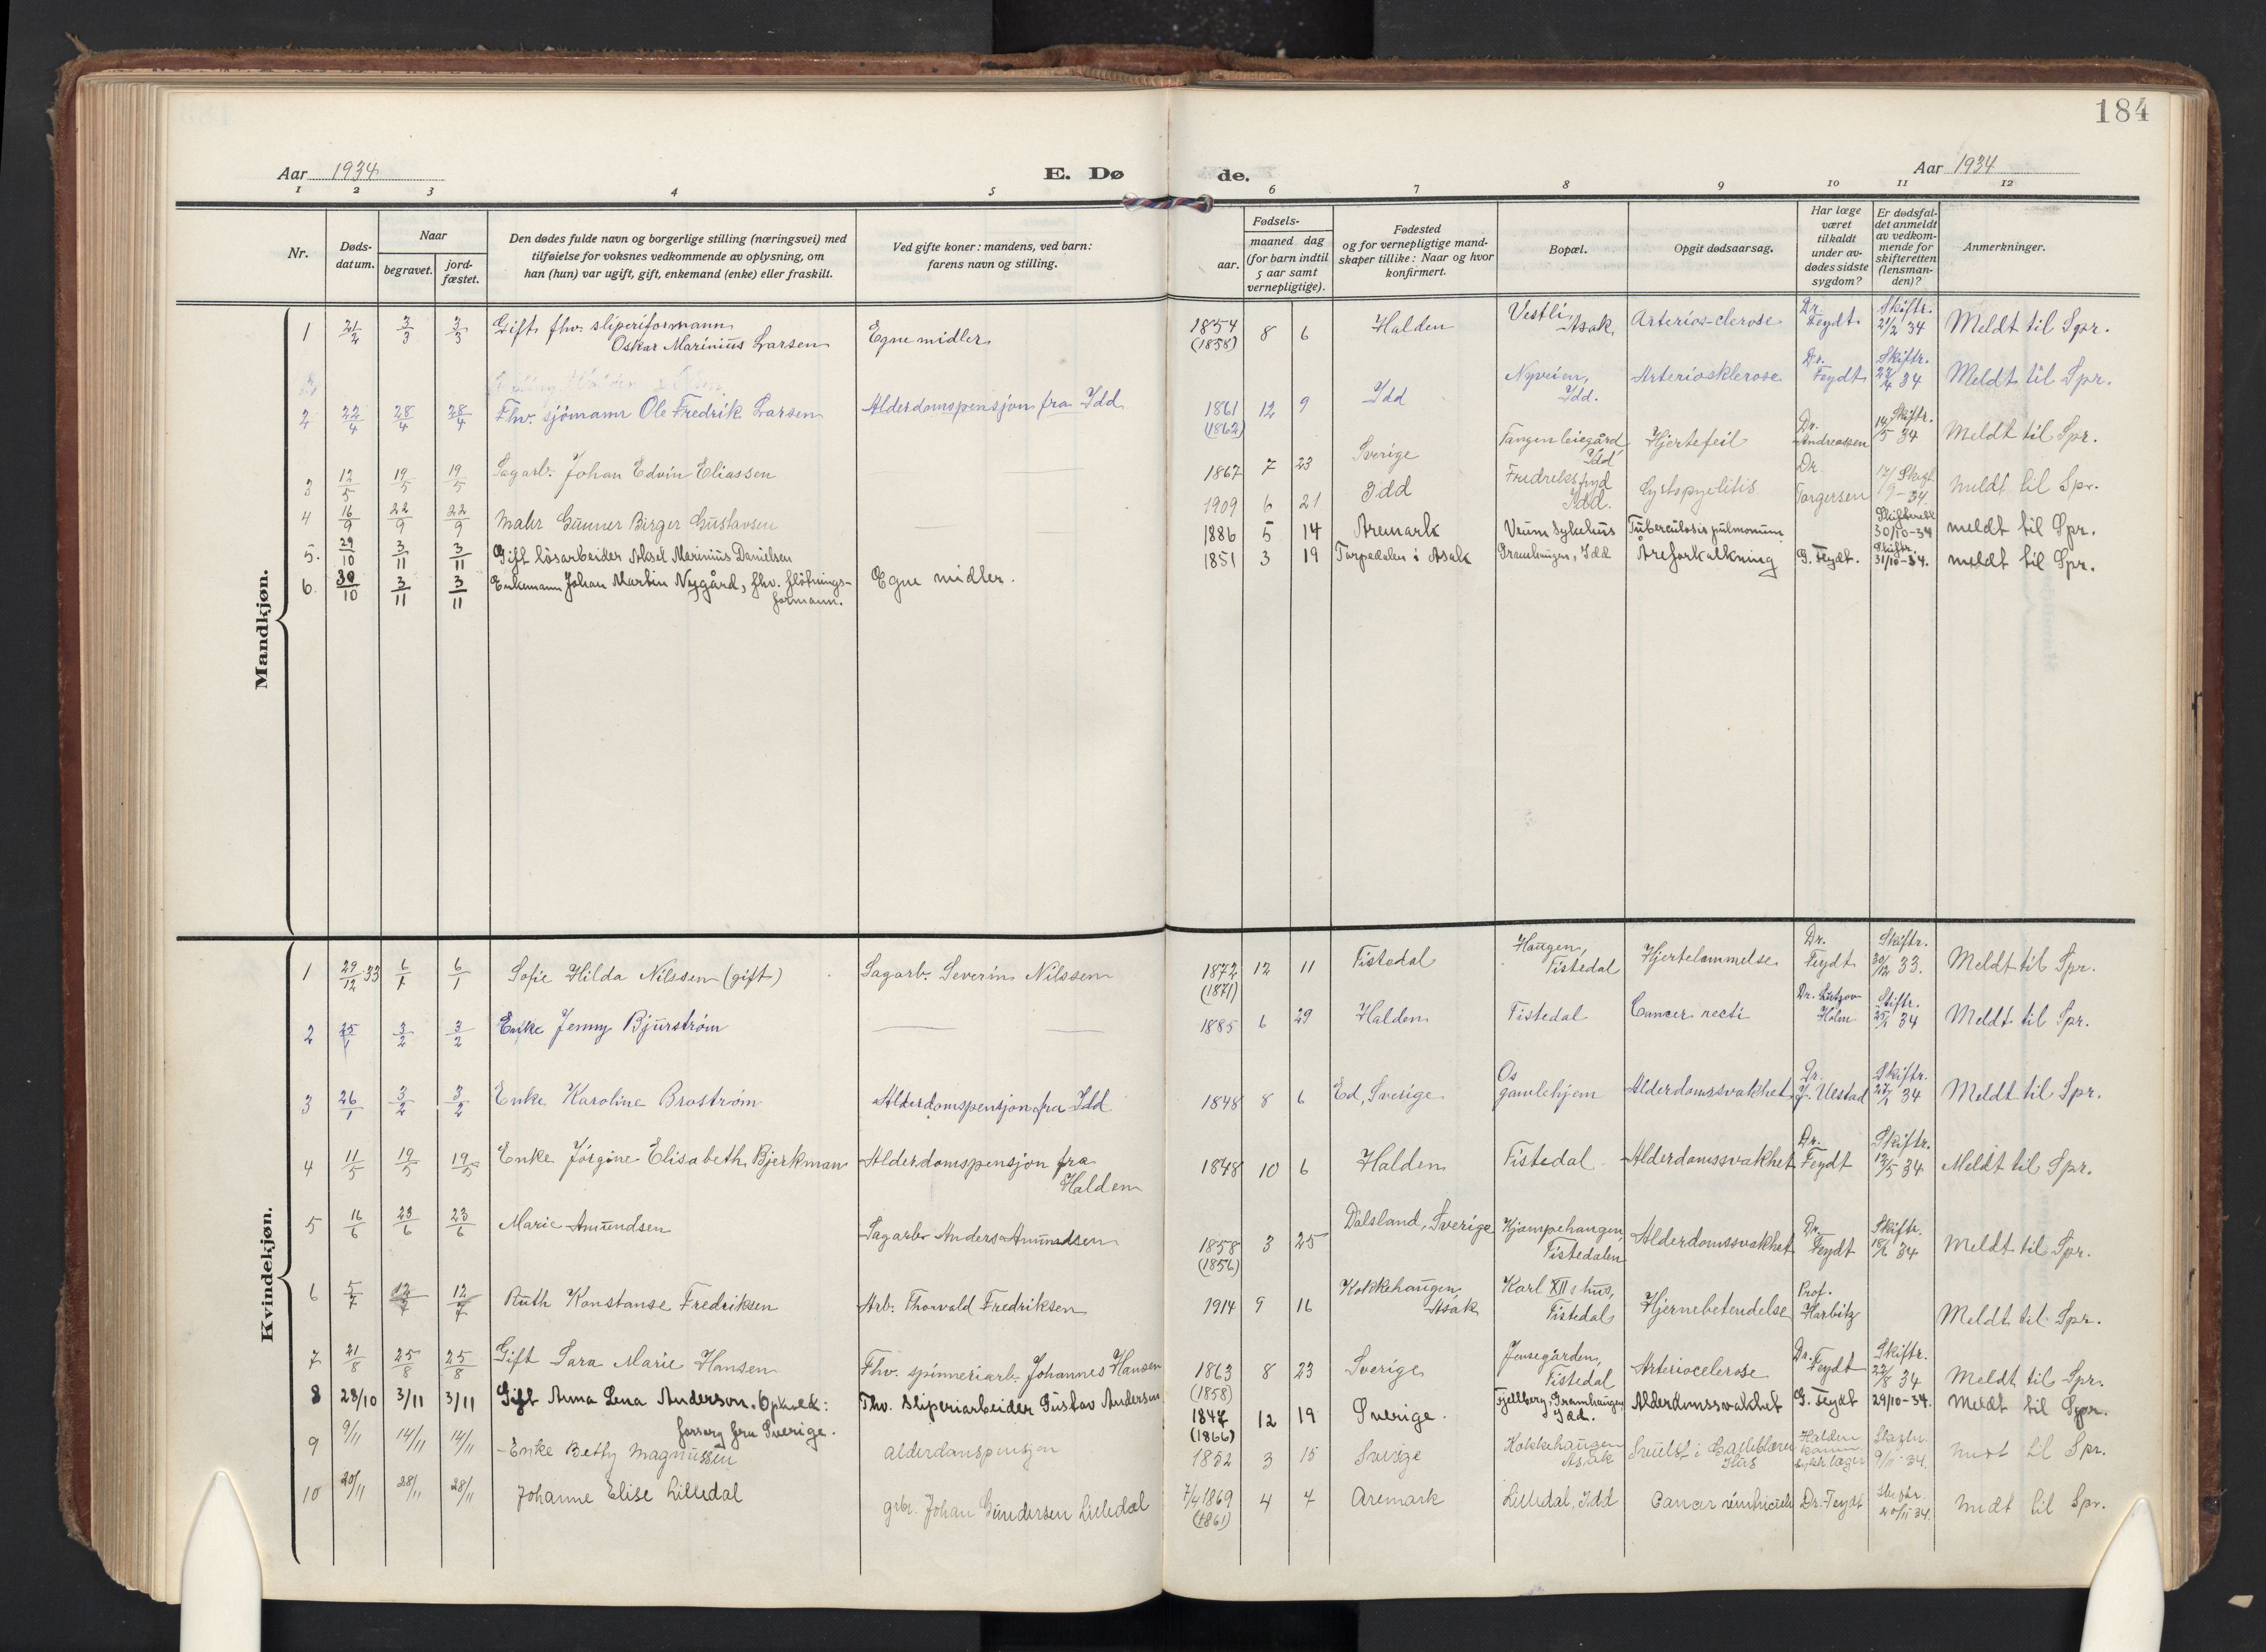 184
Aar 1934
E. Dø
de.
Aar 1934
1 2 3 4 5 6 7 8 9 10 11 12
Nr.
Døds-
datum.
Naar
begravet.
jord-
fæstet.
Den dødes fulde navn og borgerlige stilling (næringsvei) med
tilføielse for voksnes vedkommende av oplysning, om
han (hun) var ugift, gift, enkemand (enke) eller fraskilt.
Ved gifte koner: mandens, ved barn:
farens navn og stilling.
Fødsels-
aar.
maaned dag
(for barn indtil
5 aar samt
vernepligtige).
Fødested
og for vernepligtige mand-
skaper tillike: Naar og hvor
konfirmert.
Bopæl.
Opgit dødsaarsag.
Har læge
været
tilkaldt
under av-
dødes sidste
sygdom?
Er dødsfal-
det anmeldt
av vedkom-
mende for
skifteretten
(lensman-
den)?
Anmerkninger.
Mandkjøn.
1 21/2 3/3 3/3 Gift fhv. sliperiformann
Oskar Marinius Larsen Egne midler 1854 (1858) 8 6 Halden Vestli, Asak Arterios-clerose Dr. Feydt Skiftr. 21/2 34 Meldt til Spr.
2 22/4 28/4 28/4 Fhv. sjömann Ole Fredrik Larsen Alderdomspensjon fra Idd 1861 (1862) 12 9 Idd Nyveien, Idd. Arteriosklerose Dr. Feydt Skiftr. 23/4 34 Meldt til Spr.
3 12/5 19/5 19/5 Sagarb. Johan Edvin Eliassen 1867 7 23 Sverige Tangen leiegård, Idd Hjertefeil Dr. Andreassen 14/5 Skiftr. 34 Meldt til Spr.
4 16/9 22/9 22/9 Maler Gunner Birger Gustavsen 1909 6 21 Idd Fredriksfryd Idd. Cystopyelitis Dr. Torgersen 17/9-34 meldt til Spr.
5. 29/10 3/11 3/11 Gift lösarbeider Aksel Marinius Danielsen 1886 5 14 Aremark Veum Sykehus Tuberculosis pulmonum 30/10-34 meldt til Spr.
6. 30/10 3/11 3/11 Enkemann Johan Martin Nygård, fhv. flötnings-
formann. Egne midler. 1851 3 19 Torpedalen i Asak Gramhaugen, Idd Åreforkalkning G. Feydt. Skiftr. 31/10-34. meldt til Spr.
Kvindekjøn.
1 29/12 33 6/1 6/1 Sofie Hilda Nilssen (gift) Sagarb. Severin Nilssen 1872 (1871) 12 11 Tistedal Haugen, Tistedal Hjertelammelse Dr. Feydt Skiftr. 30/12 33. Meldt til Spr.
2 25/1 3/2 3/2 Enke Jenny Bjurström 1885 6 29 Halden Tistedal Cancer recti Dr. Lutzow Holm Skiftr. 25/1 34 Meldt til Spr.
3 26/1 3/2 3/2 Enke Karoline Broström Alderdomspensjon fra Idd 1848 8 6 Ed, Sverige Os gamlehjem Alderdomssvakhet Dr. J. Uestad Skiftr. 27/1 34 Meldt til Spr.
4 11/5 19/5 19/5 Enke Jörgine Elisabeth Bjerkman Alderdomspensjon fra
Halden 1848 10 6 Halden Tistedal Alderdomssvakhet Dr. Feydt Skiftr. 12/5 34 Meldt til Spr.
5 16/6 23/6 23/6 Marie Amundsen Sagarb. Anders Amundsen 1858 (1856) 3 25 Dalsland, Sverige Kjæmpehaugen, Tistedalen Alderdomssvakhet Dr. Feydt Skiftr. 18/6 34 Meldt til Spr.
6 5/7 12/7 12/7 Ruth Konstanse Fredriksen Arb. Thorvald Fredriksen 1914 9 16 Kokkehaugen, Asak Karl XIIs hus, Tistedal Hjernebetendelse Prof. Harbitz Meldt til Spr.
7 21/8 25/8 25/8 Gift Sara Marie Hansen Fhv. spinneriarb. Johannes Hansen 1863 (1858) 8 23 Sverige Jensegården, Tistedal Arteriocelerose Dr. Feydt Skiftr. 22/8 34 Meldt til Spr.
8 28/10 3/11 3/11 Gift Anna Lena Anderson. Opholdt:
forsorg fra Sverige. Fhv. Sliperiarbeider Gustav Anderson 1847 (1866) 12 19 Sverige. Fjellberg, Gramhaugen, Idd. Alderdomssvakhet G. Feydt 29/10-34. Meldt til Spr.
9 9/11 14/11 14/11 Enke Bethy Magnussen alderdomspensjon 1852 3 15 Sverige Kokkehaugen Asak Svulst i Galleblæren Halden 9/11-34. meldt til Spr.
10 20/11 28/11 28/11 Johanne Elise Lilledal grbr. Johan Gundersen Lilledal 7/4 1869 (1861) 4 7 Aremark Lilledal, Idd Cancer ventriculi Dr. Feydt Skiftr. 20/11 34. meldt til Spr.